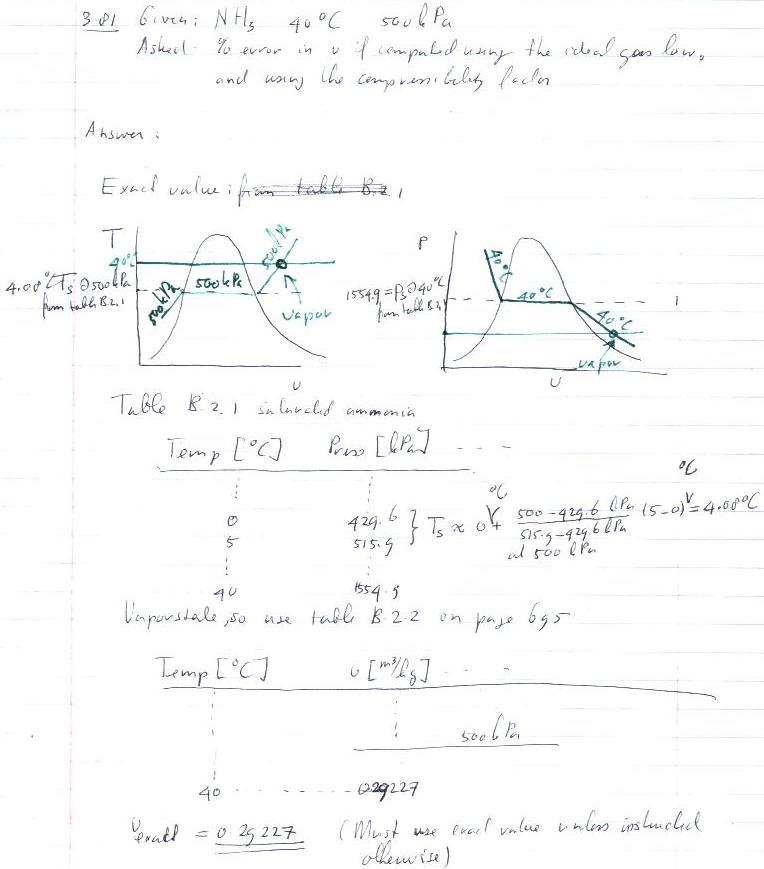 3.81 Given: NH3 40°C 500 kPa
Asked: % error in v if computed using the ideal gas law,
and using the compressibility factor
Answer:
Exact value: from table B.2.1
T
40°C
4.08°C Ts @ 500 kPa
from table B.2.1
500kPa
500kPa
500kPa
vapor
υ
P
1554.9 = Ps @ 40°C
from table B.2.1
40°C
40°C
40°C
vapor
υ
Table B.2.1 saturated ammonia
Temp [°C] Press [kPa] - - -
0 429.6
5 515.9
} Ts ≈ 0°C + (500-429.6 kPa)/(515.9-429.6 kPa) (5-0)°C = 4.08°C
at 500 kPa
40 1554.9
Vapor state, so use table B.2.2 on page 695
Temp [°C] υ [m³/kg] - - -
500 kPa
40 - - - - - 0.29227
υexact = 0.29227 (Must use exact value unless instructed
otherwise)